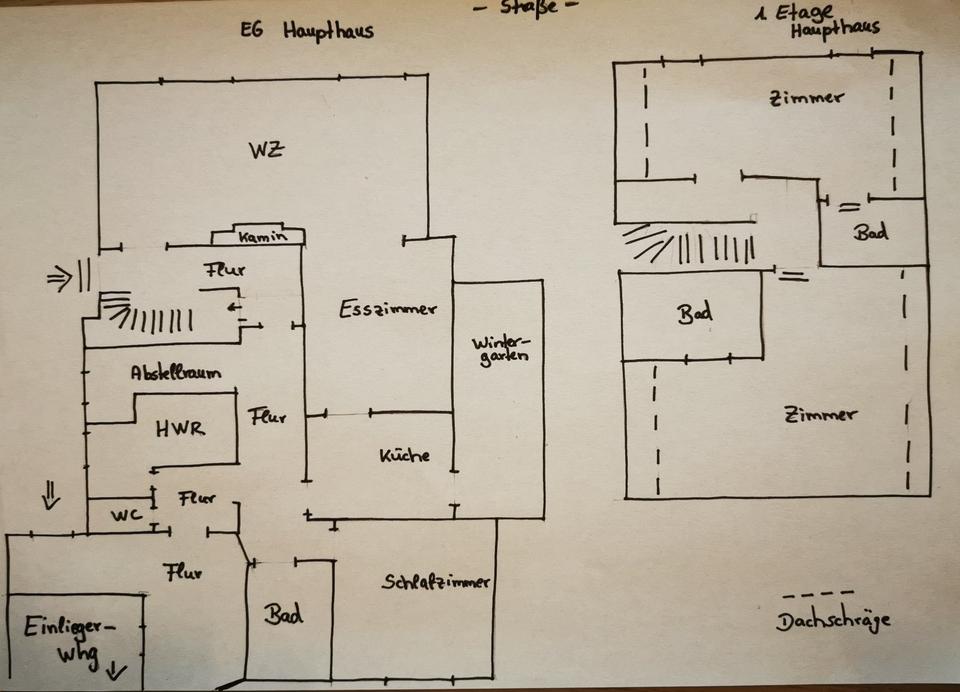 - Straße -
EG Haupthaus
1. Etage
Haupthaus
WZ
Kamin
Flur
Esszimmer
Winter-
garten
Abstellraum
HWR
Flur
Küche
Flur
WC
Flur
Schlafzimmer
Bad
Einlieger-
whg
Zimmer
Bad
Bad
Zimmer
Dachschräge